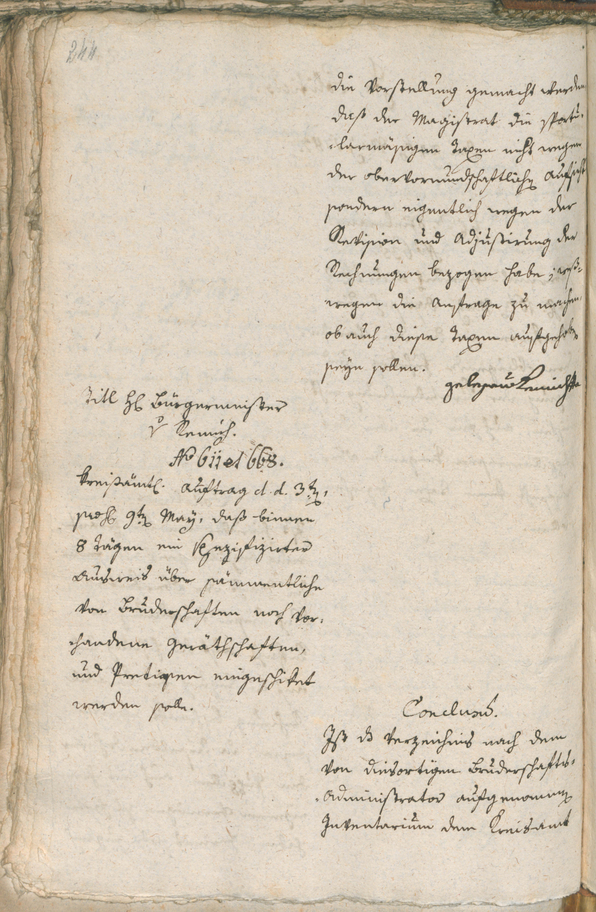 244
die Vorstellung gemacht werden
daß der Magistrat die sportu-
larmäsigen Taxen nicht wegen
der obervormundschaftlichen Aufsicht
sondern eigentlich wegen der
Revision und Adjustirung der
Rechnungen bezogen habe, weß-
wegen die Anfrage zu machen
ob auch diese Taxen aufgehoben
seyn sollen.
gelesen
Titl H: Bürgermeister
v Remich.
No 611 et 668.
Kreisämtl. Auftrag d. d. 3ten,
9ten May, daß binnen
8 Tägen ein spezifizirter
Ausweis über sämmentliche
von Bruderschaften noch vor-
handene Geräthschaften,
und Pretiosen eingeschiket
werden solle.
Conclusum.
Ist das Verzeichnis nach dem
von diesortigen Bruderschafts-
Administrator aufgenommenen
Inventarium dem Kreisamt